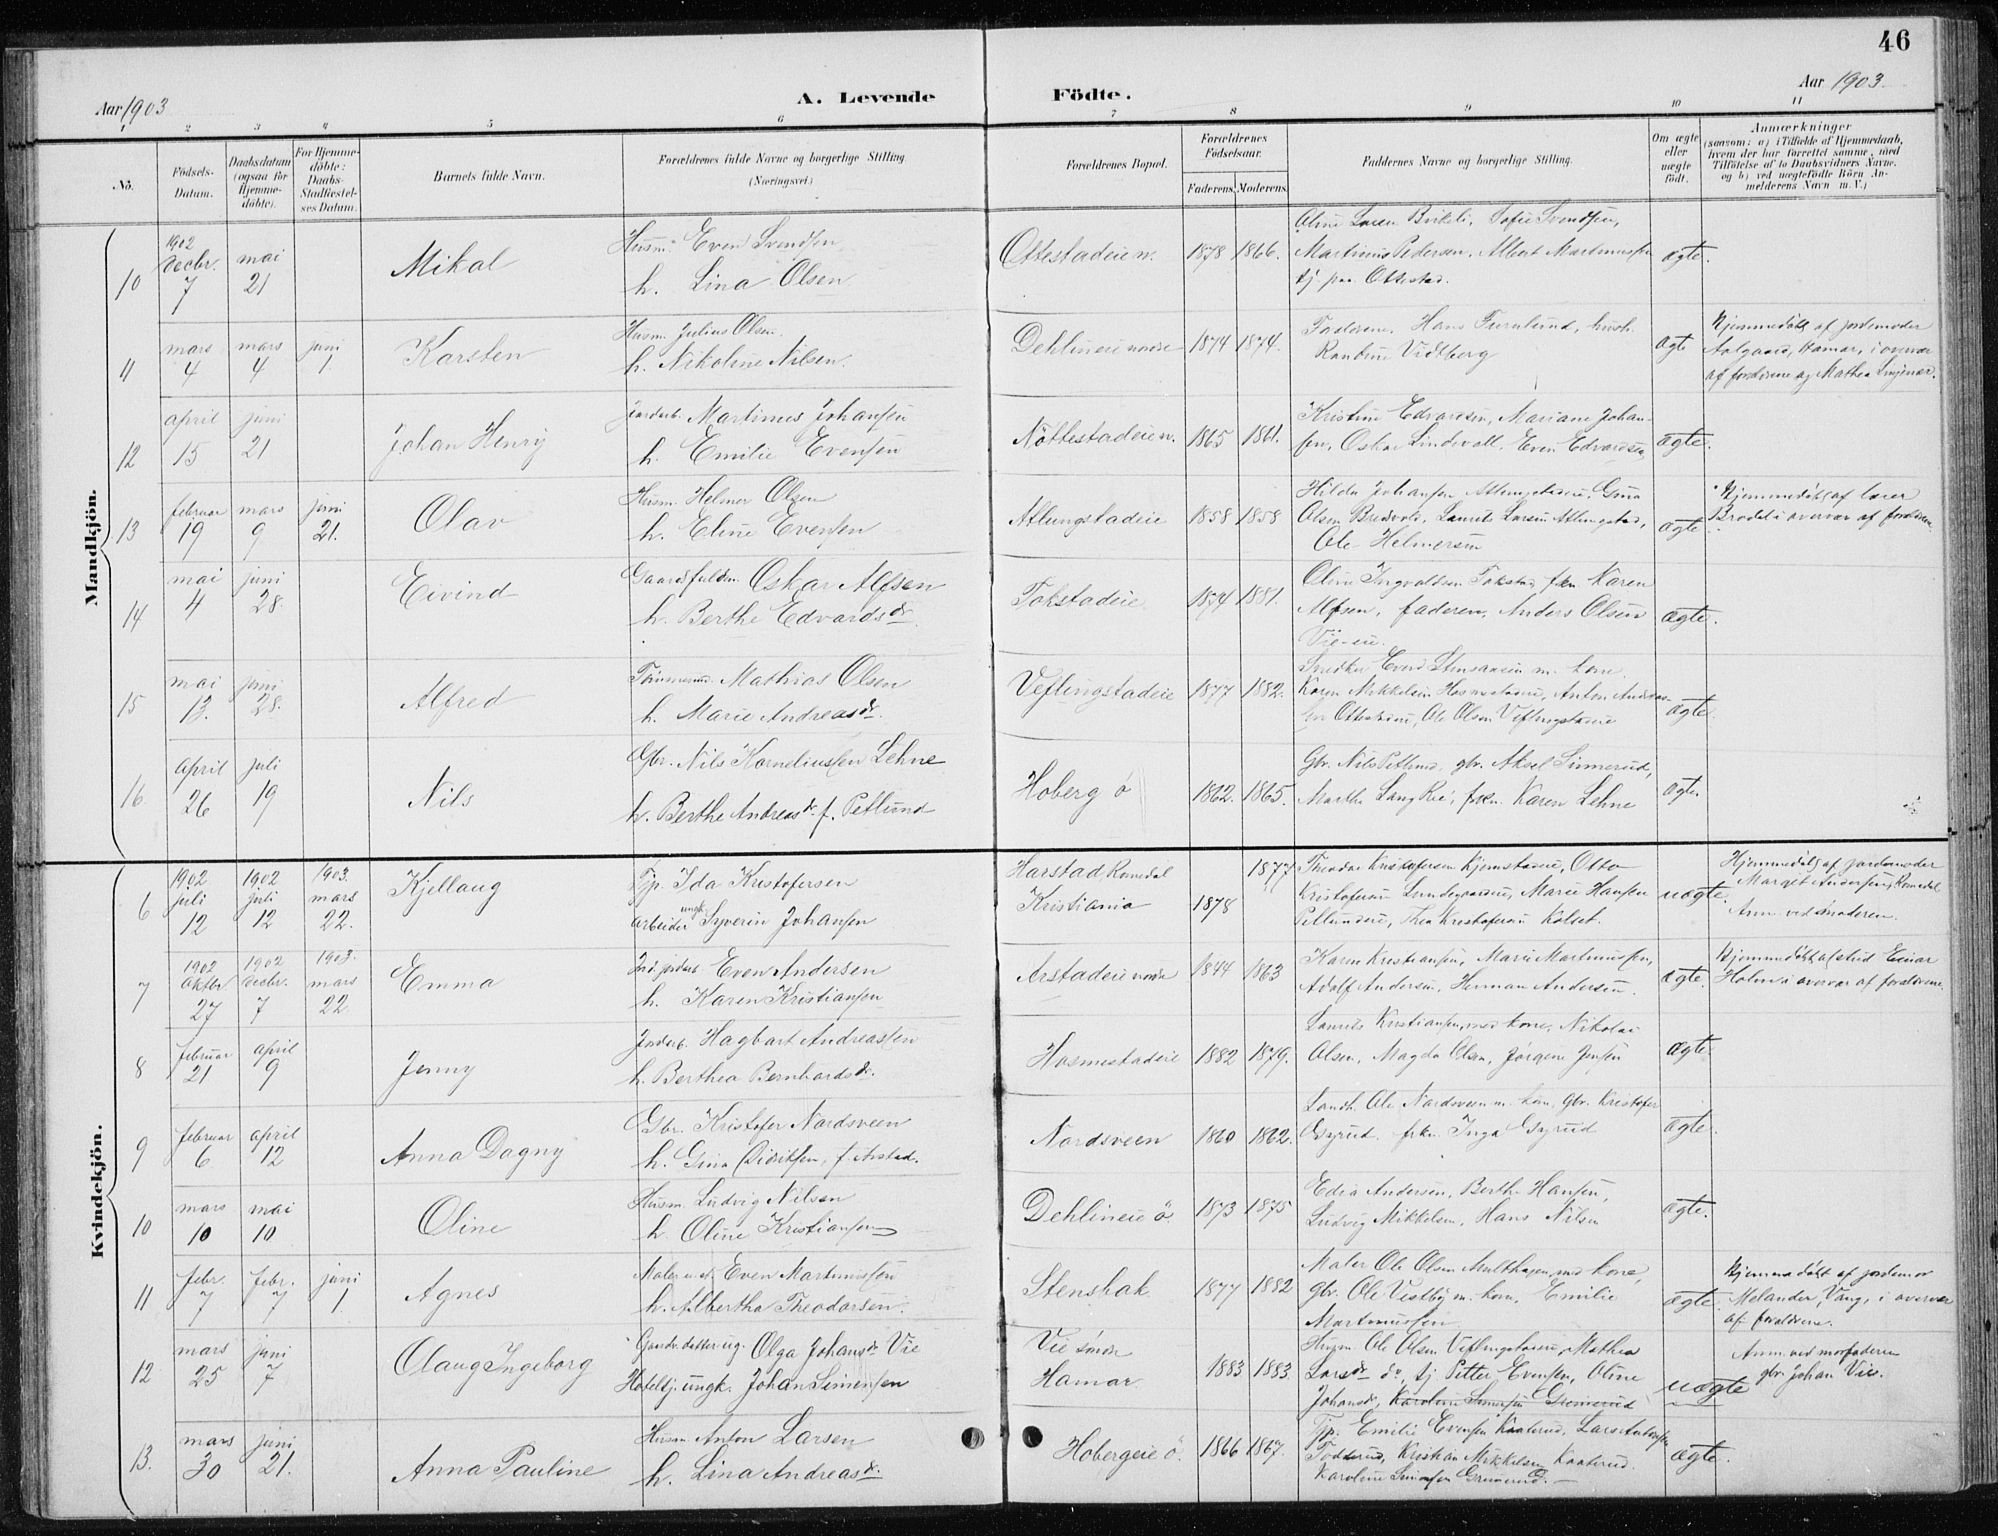 46
Aar 1903
A. Levende Födte.
Aar 1903.
1 2 3 4 5 6 7 8 9 10 11
No.
Födsels-Datum.
Daabsdatum (ogsaa for Hjemme-döbte).
For Hjemme-döbte: Daabs-Stadfæstel-ses Datum.
Barnets fulde Navn.
Forældrenes fulde Navne og borgerlige Stilling. (Næringsvei.)
Forældrenes Bopæl.
Forældrenes Födselsaar.
Faderens. Moderens.
Faddernes Navne og borgerlige Stilling.
Om ægte eller uægte födt.
Anmærkninger
(saasom: a) i Tilfælde af Hjemmedaab, hvem der har forrettet samme, med Tilföielse af to Daabsvidners Navne. og b) ved uægtefödte Börn An-melderens Navn m. V.)
Mandkjön.
10 1902 decbr. 7 mai 21 Mikal
Husm. Even Svendsen
h. Lina Olsen
Ottestadeie n. 1878 1866.
Oline Larsen Birkeli, Sofie Svendsen,
Martinius Pedersen, Albert Martinussen
tj. paa Ottestad.
ægte.
11 mars 4 mars 4 juni 1. Karsten
Husm. Julius Olsen
h. Nikoline Nilsen.
Dehlineie nordre 1874 1874.
Faderene, Hans Furulund, hush.
Randine Vidtberg
ægte
Hjemmedöbt af jordemoder
Aalgaard, Hamar, i overvær
af forældrene og Mathea
12 april 15 juni 21 Johan Henry
Jordarb. Martinus Johansen
h. Emilie Evensen
Nöttestadeie n. 1865 1861.
Kristine Edvardsen, Mariane Johan-
sen, Oskar Lindevall, Even Edvardsen
ægte.
13 februar 19 mars 9 juni 21. Olav
Husm. Helmer Olsen
h. Eline Evensen
Atlungstadeie 1858 1858
Hilda Johansen Atlungstadeie, Gina
Olsen Bredvold, Laurits Larsen Atlungstad,
Ole Helmersen
ægte.
Hjemmedöbt af lærer
Brodal i overvær af forældrene.
14 mai 4 juni 28. Eivind
Gaardsfuldm. Oskar Alfsen
h. Berthe Edvardsdr.
Tokstadeie 1874 1881.
Oline Ingvaldsen Tokstad, frk. Karen
Alfsen, faderen, Anders Olsen
Vie-eie.
ægte.
15 mai 13. juni 28. Alfred
Tömmermd. Mathias Olsen
h. Marie Andreasdr.
Veflingstadeie 1877 1882.
Snedker Everd Stensaasen m. kone
Karen Mikkelsen Hosmestadeie, Anton Andreas-
sen Ottestadeie, Ole Olsen Veflingstadeie
ægte.
16 april 26 juli 19 Nils
Gbr. Nils Korneliussen Lehne
h. Berthe Andreasdr. f. Petlund
Hoberg ö 1862. 1865.
Gbr. Nils Petlund, gbr. Aksel Linnerud,
Marthe Langlie, frkn. Karen Lehne
ægte.
Kvindekjön.
6 1902 juli 12 1902 juli 12 1903. mars 22. Kjellaug
Tjp. Ida Kristofersen
arbeider ungk. Syverin Johansen
Harstad Romedal 1877
Kristiania 1878
Theodor Kristofersen Kjemstadeie, Otto
Kristofersen Lundgaardeie, Marie Hansen
Petlundeie, Thea Kristofersen Kolset.
uægte.
Hjemmedöbt af jordemoder
Margit Andersen, Romedal
Anm. ved moderen.
7 1902 oktbr. 27 1902 decbr. 7 1903. mars 22 Emma
Ind. jordarb. Even Andersen
h. Karen Kristiansen
Arstadeie nordre 1844 1863
Karen Kristiansen, Marie Martinussen,
Adolf Andersen, Herman Andersen.
ægte.
Hjemmedöbt af stud. Einar
Holm i overvær af forældrene.
8 februar 21 april 9 Jenny
Jordarb. Hagbart Andreassen
h. Berthea Bernhardsdr.
Hosmestadeie 1882 1879.
Laurits Kristiansen med kone, Nikolai
Olsen, Magda Olsen, Jörgine Jensen
ægte
9 februar 6 april 12 Anna Dagny
Gbr. Kristofer Nordsveen
h. Gina Didriksen, f. Arstad.
Nordsveen 1860 1862.
Landh. Ole Nordsveen m. kone, gbr. Kristofer
Gyrud, frkn. Inga Gyrud
ægte.
10 mars 10 mai 10 Oline
Husm. Ludvig Nilsen
h. Oline Kristiansen
Dehlineie ö. 1873 1875
Edia Andersen, Berthe Hansen,
Ludvig Mikkelsen, Hans Nilsen
ægte.
11 febr. 7 febr. 7 juni 1. Agnes
Maler Even Martinussen
h. Albertha Theodorsen.
Stenshak 1877 1882
Maler Ole Olsen Multhagen med kone,
gbr. Ole Vestby m. kone, Emilie
Martinussen
ægte.
Hjemmedöbt af jordemor
Melander, Vang, i overvær
af forældrene.
12 mars 25 juni 7 Olaug Ingeborg
Gaardsdatter ug. Olga Johansdr. Vie
Hoteltj. ungk. Johan Simensen
Vie söndre
Hamar 1883 1883.
Husm. Ole Olsen Veflingstadeie, Mathea
Larsdr. do, tj. Petter Evensen, Oline
Johansdr., Karoline Simensen Grimerud
uægte
Anm. ved morfaderen
gbr. Johan Vie.
13. mars 30 juni 21. Anna Pauline
Husm. Anton Larsen
h. Lina Andreasdr.
Hobergeie ö. 1866 1867.
Tjp. Emilie Evensen Kaaterud, Lars Antonsen
Todderud, Kristian Mikkelsen Kaaterud.
Karoline Simensen Grimerud.
ægte.